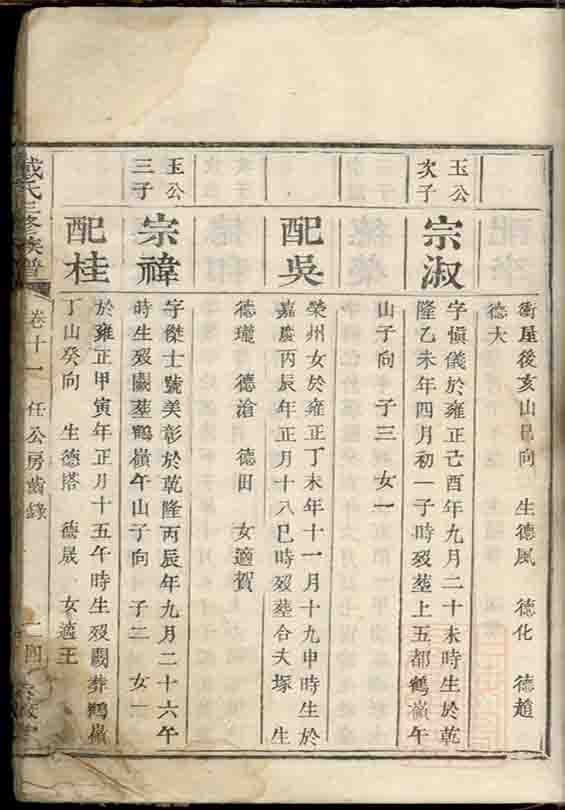 衝屋後亥山巳向 生德風 德化 德趙
德大
玉公
次子
宗淑
字愼儀於雍正己酉年九月二十未時生於乾
隆乙未年四月初一子時歿塟上五都鶴嶺午
山子向 子三 女一
配吳
榮州女於雍正丁未年十一月十九申時生於
嘉慶丙辰年正月十八巳時歿塟合大塚 生
德瓏 德滄 德田 女適賀
玉公
三子
宗禕
字傑士號美彰於乾隆丙辰年九月二十六午
時生歿闕塟鶴嶺午山子向 子二 女一
配桂
於雍正甲寅年正月十五午時生歿闕葬鶴嶺
丁山癸向 生德塔 德晟 女適王
戴氏三修族譜
卷十一 任公房齒錄